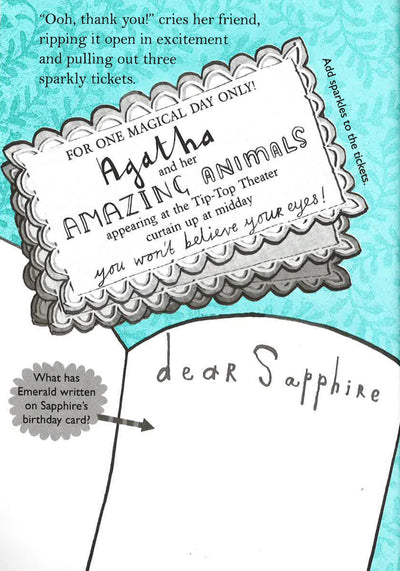 “Ooh, thank you!” cries her friend,
ripping it open in excitement
and pulling out three
sparkly tickets.
Add sparkles to the tickets.
FOR ONE MAGICAL DAY ONLY!
Agatha
and her
AMAZING ANIMALS
appearing at the Tip-Top Theater
curtain up at midday
you won't believe your eyes!
dear Sapphire
What has
Emerald written
on Sapphire's
birthday card?